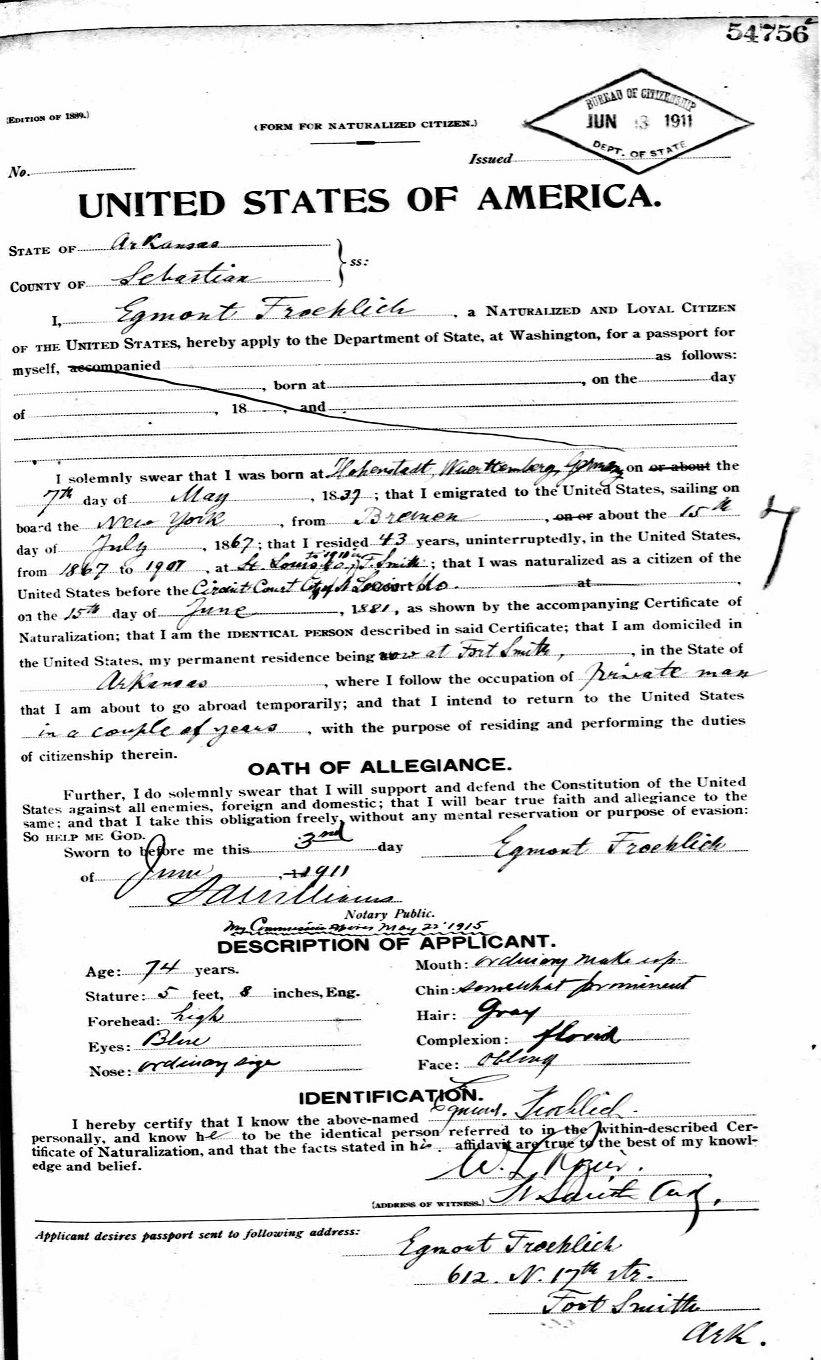 54756
(EDITION OF 1889.)
(FORM FOR NATURALIZED CITIZEN.)
BUREAU OF CITIZENSHIP
JUN 3 1911
DEPT. OF STATE
No.
Issued
UNITED STATES OF AMERICA.
STATE OF Arkansas
COUNTY OF Sebastian
ss:
I, Egmont Froehlich, a NATURALIZED AND LOYAL CITIZEN
OF THE UNITED STATES, hereby apply to the Department of State, at Washington, for a passport for
myself, accompanied as follows:
, born at , on the day
of , 18 , and
I solemnly swear that I was born at Hohenstadt, Wuerttemberg, Germany on or about the
7th day of May, 1837; that I emigrated to the United States, sailing on
board the New York, from Bremen, on or about the 15th
day of July, 1867; that I resided 43 years, uninterruptedly, in the United States,
from 1867 to 1907, at St. Louis to 1910 in Ft. Smith; that I was naturalized as a citizen of the
United States before the Circuit Court City of St Louis Mo. at ,
on the 15th day of June, 1881, as shown by the accompanying Certificate of
Naturalization; that I am the IDENTICAL PERSON described in said Certificate; that I am domiciled in
the United States, my permanent residence being now at Fort Smith, , in the State of
Arkansas, where I follow the occupation of private man
that I am about to go abroad temporarily; and that I intend to return to the United States
in a couple of years, with the purpose of residing and performing the duties
of citizenship therein.
7
OATH OF ALLEGIANCE.
Further, I do solemnly swear that I will support and defend the Constitution of the United
States against all enemies, foreign and domestic; that I will bear true faith and allegiance to the
same; and that I take this obligation freely, without any mental reservation or purpose of evasion:
SO HELP ME GOD.
Sworn to before me this 3rd day
Egmont Froehlich
of June, 1911
S A Williams
Notary Public.
My Commission expires May 22 1915
DESCRIPTION OF APPLICANT.
Age: 74 years.
Stature: 5 feet, 8 inches, Eng.
Forehead: high
Eyes: Blue
Nose: ordinary size
Mouth: ordinary make up
Chin: somewhat prominent
Hair: Gray
Complexion: florid
Face: oblong
IDENTIFICATION.
I hereby certify that I know the above-named Egmont Froehlich
personally, and know he to be the identical person referred to in the within-described Cer-
tificate of Naturalization, and that the facts stated in his affidavit are true to the best of my knowl-
edge and belief.
W. L.
(ADDRESS OF WITNESS.) Ft Smith Ark.
Applicant desires passport sent to following address:
Egmont Froehlich
612. N. 17th str.
Fort Smith
Ark.